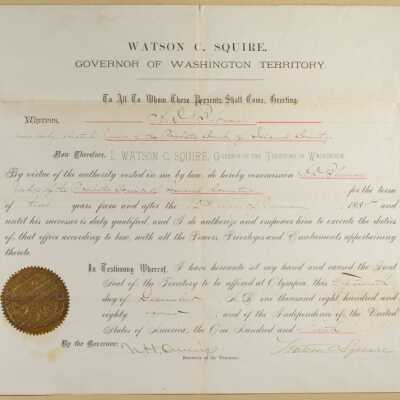 WATSON C. SQUIRE,
GOVERNOR OF WASHINGTON TERRITORY.
To All To Whom These Presents Shall Come, Greeting:
Whereas,
was duly elected Judge of the Probate Court of Island County
Now Therefore, I, WATSON C. SQUIRE, GOVERNOR OF THE TERRITORY OF WASHINGTON,
By virtue of the authority vested in me by law, do hereby commission
Judge of the Probate Court of Island County for the term
of two years from and after the day of 188 and
until his successor is duly qualified, and I do authorize and empower him to execute the duties
of that office according to law, with all the Powers, Privileges and Emoluments appertaining
thereto.
In Testimony Whereof, I have hereunto set my hand and caused the Great
Seal of the Territory to be affixed at Olympia, this
day of December A. D. one thousand eight hundred and
eighty and of the Independence of the United
States of America, the One Hundred and
By the Governor: N. H. Owings Watson C. Squire
Secretary of the Territory.